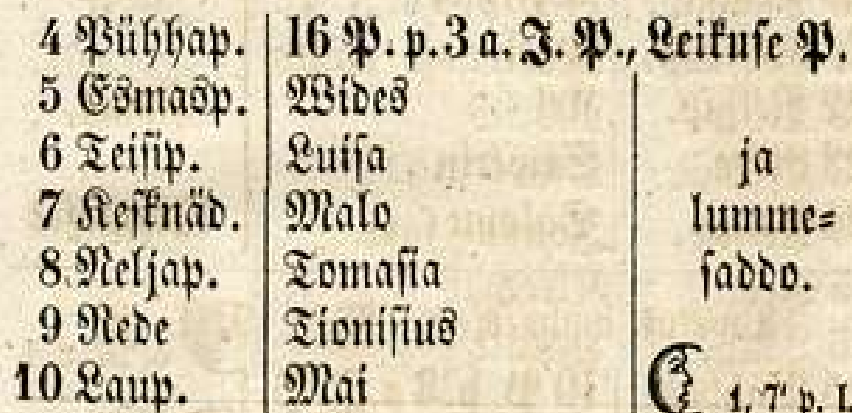 4 Pühhap. 16 P. p. 3 a. J. P., Leikuse P.
5 Esmasp. Wides
6 Teisip. Luisa ja
7 Kesknäd. Malo lumme-
8 Neljap. Tomasia saddo.
9 Rede Tionisius
10 Laup. Mai 1, 7' p. l.